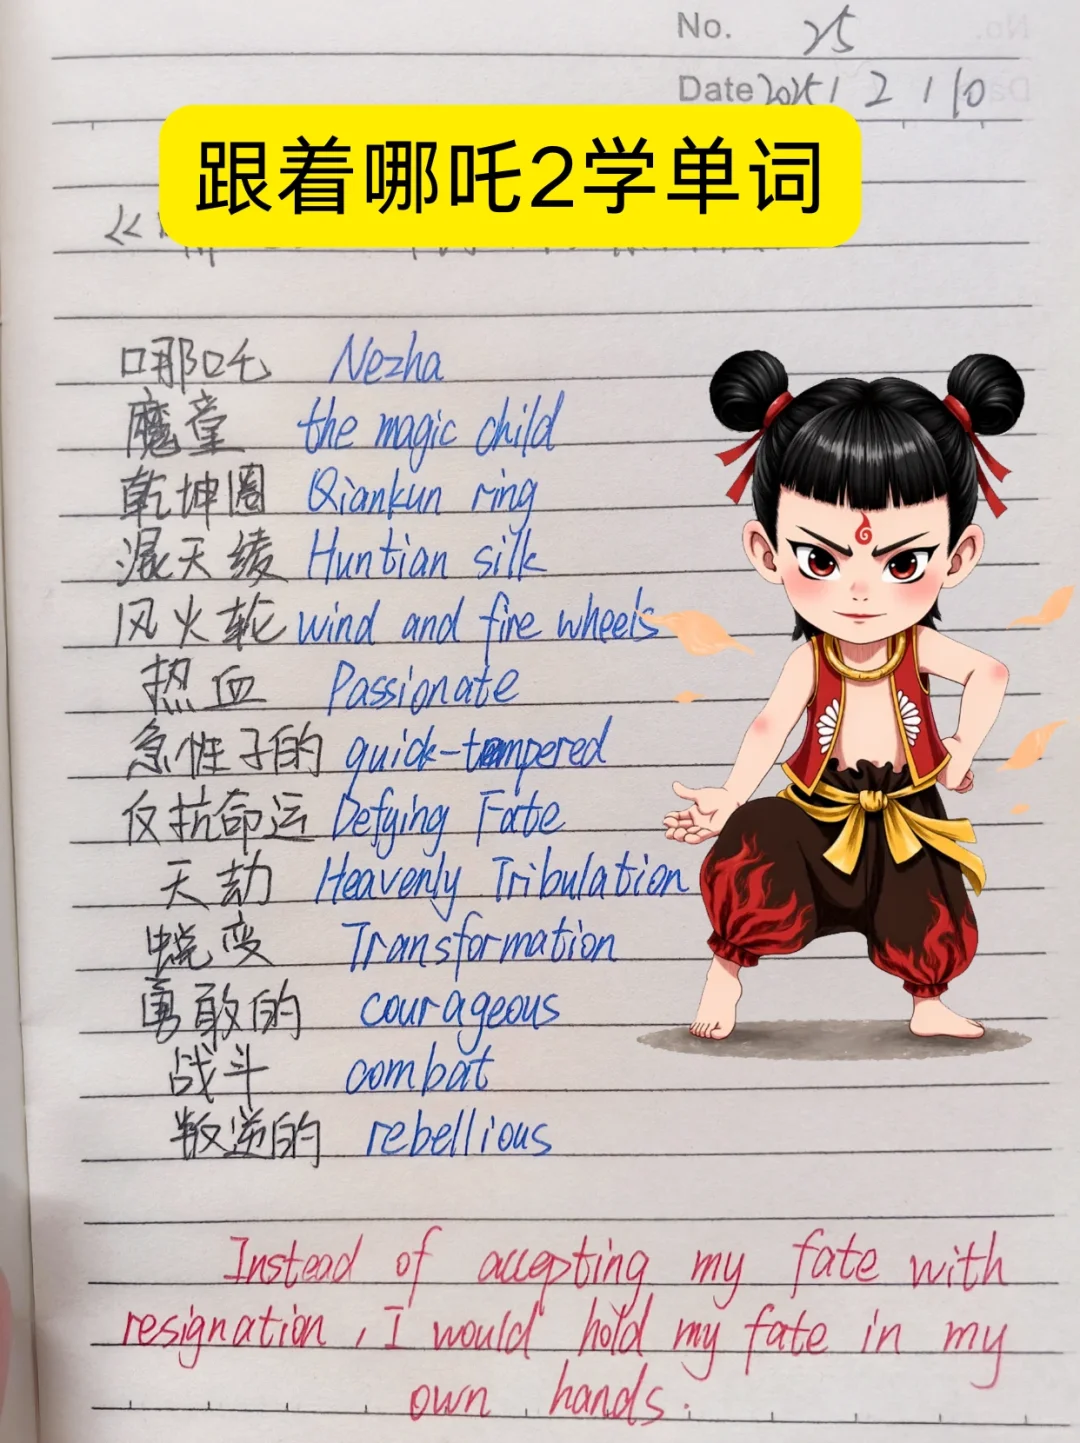 No. 25
Date 2025 / 2 / 10
跟着哪吒2学单词
哪吒 Nezha
魔童 the magic child
乾坤圈 Qiankun ring
混天绫 Huntian silk
风火轮 wind and fire wheels
热血 Passionate
急性子的 quick-tempered
反抗命运 Defying Fate
天劫 Heavenly Tribulation
蜕变 Transformation
勇敢的 courageous
战斗 combat
叛逆的 rebellious
Instead of accepting my fate with
resignation, I would hold my fate in my
own hands.